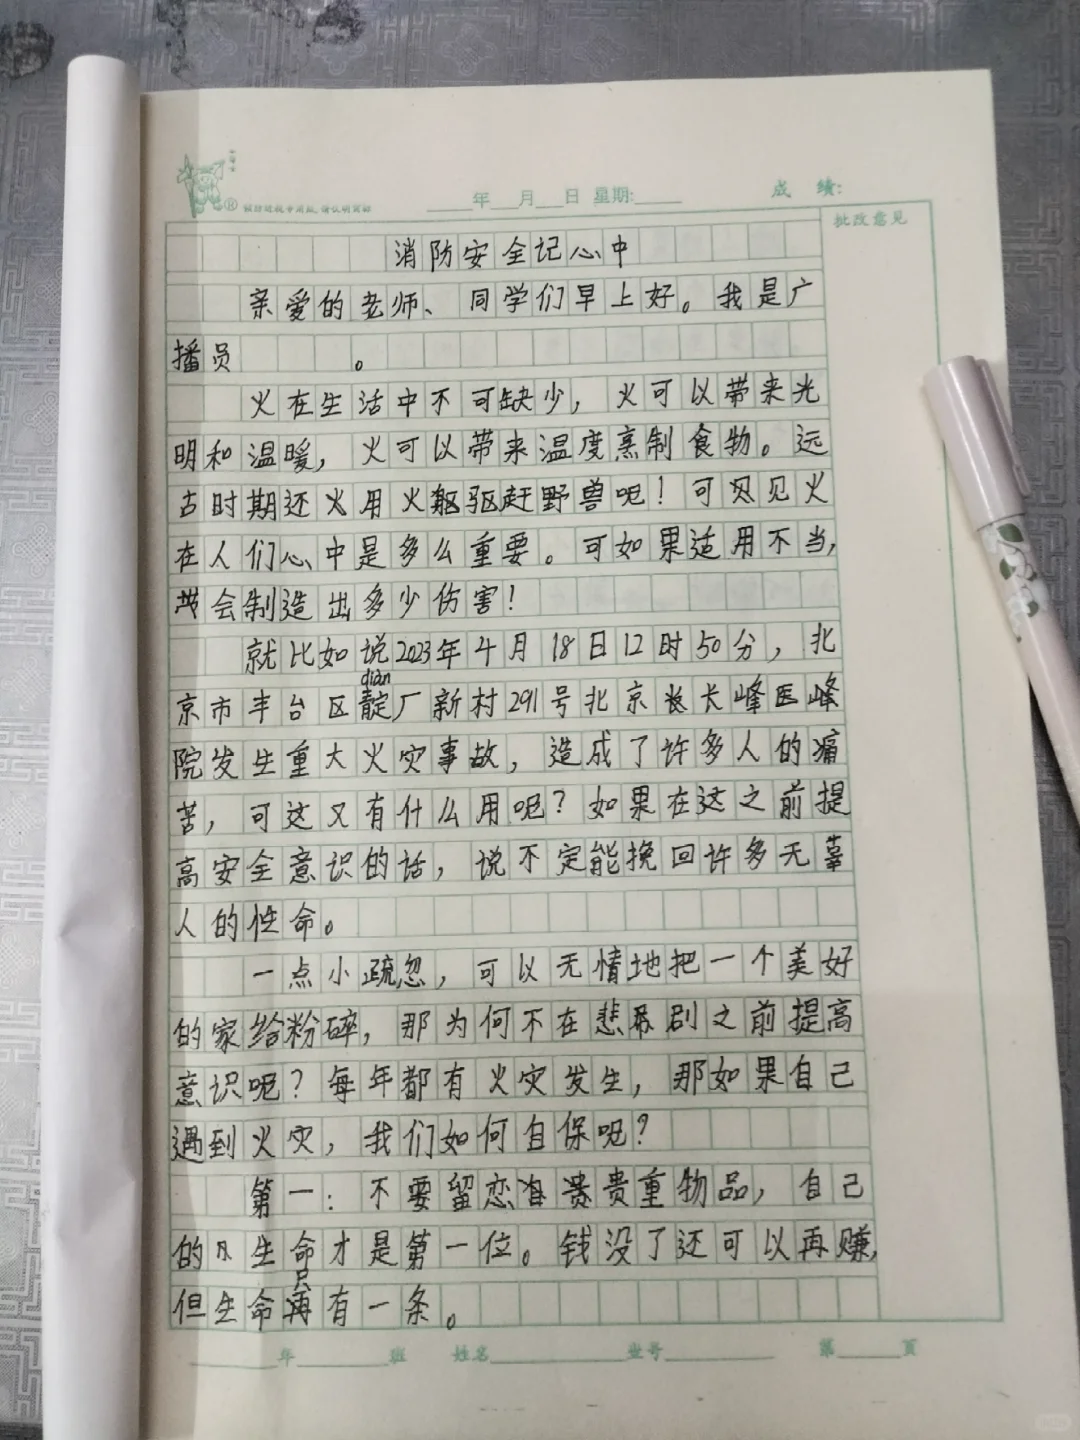 年 月 日 星期: 成 绩:
批改意见
消防安全记心中
亲爱的老师、同学们早上好。我是广
播员 。
火在生活中不可缺少，火可以带来光
明和温暖，火可以带来温度烹制食物。远
古时期还火用火驱驱赶野兽呢！可贝见火
在人们心中是多么重要。可如果适用不当，
会制造出多少伤害！
就比如说2023年4月18日12时50分，北
dian
京市丰台区靛厂新村291号北京长长峰医峰
院发生重大火灾事故，造成了许多人的痛
苦，可这又有什么用呢？如果在这之前提
高安全意识的话，说不定能挽回许多无辜
人的性命。
一点小疏忽，可以无情地把一个美好
的家给粉碎，那为何不在悲剧之前提高
意识呢？每年都有火灾发生，那如果自己
遇到火灾，我们如何自保呢？
第一：不要留恋贵贵重物品，自己
的生命才是第一位。钱没了还可以再赚，
只
但生命再有一条。
年 班 姓名 坐号 第 页